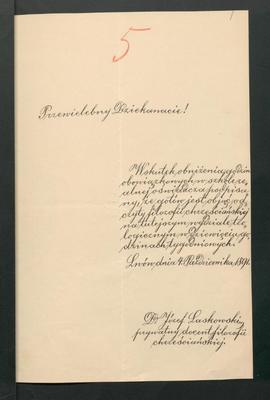 5
Przewielebny Dziekanacie!
Wskutek obniżenia godzin
obowiązkowych w szkole re-
alnej oświadcza podpisa-
ny, że gotów jest objąć od-
czyty filozofii chrześciańskiej
na tutejszym wydziale teo-
logicznym w dziewięciu go-
dzinach tygodniowych.
Lwów, dnia 4. Października 1891.
Dr Józef Laskowski,
prywatny docent filozofii
chrześciańskiej